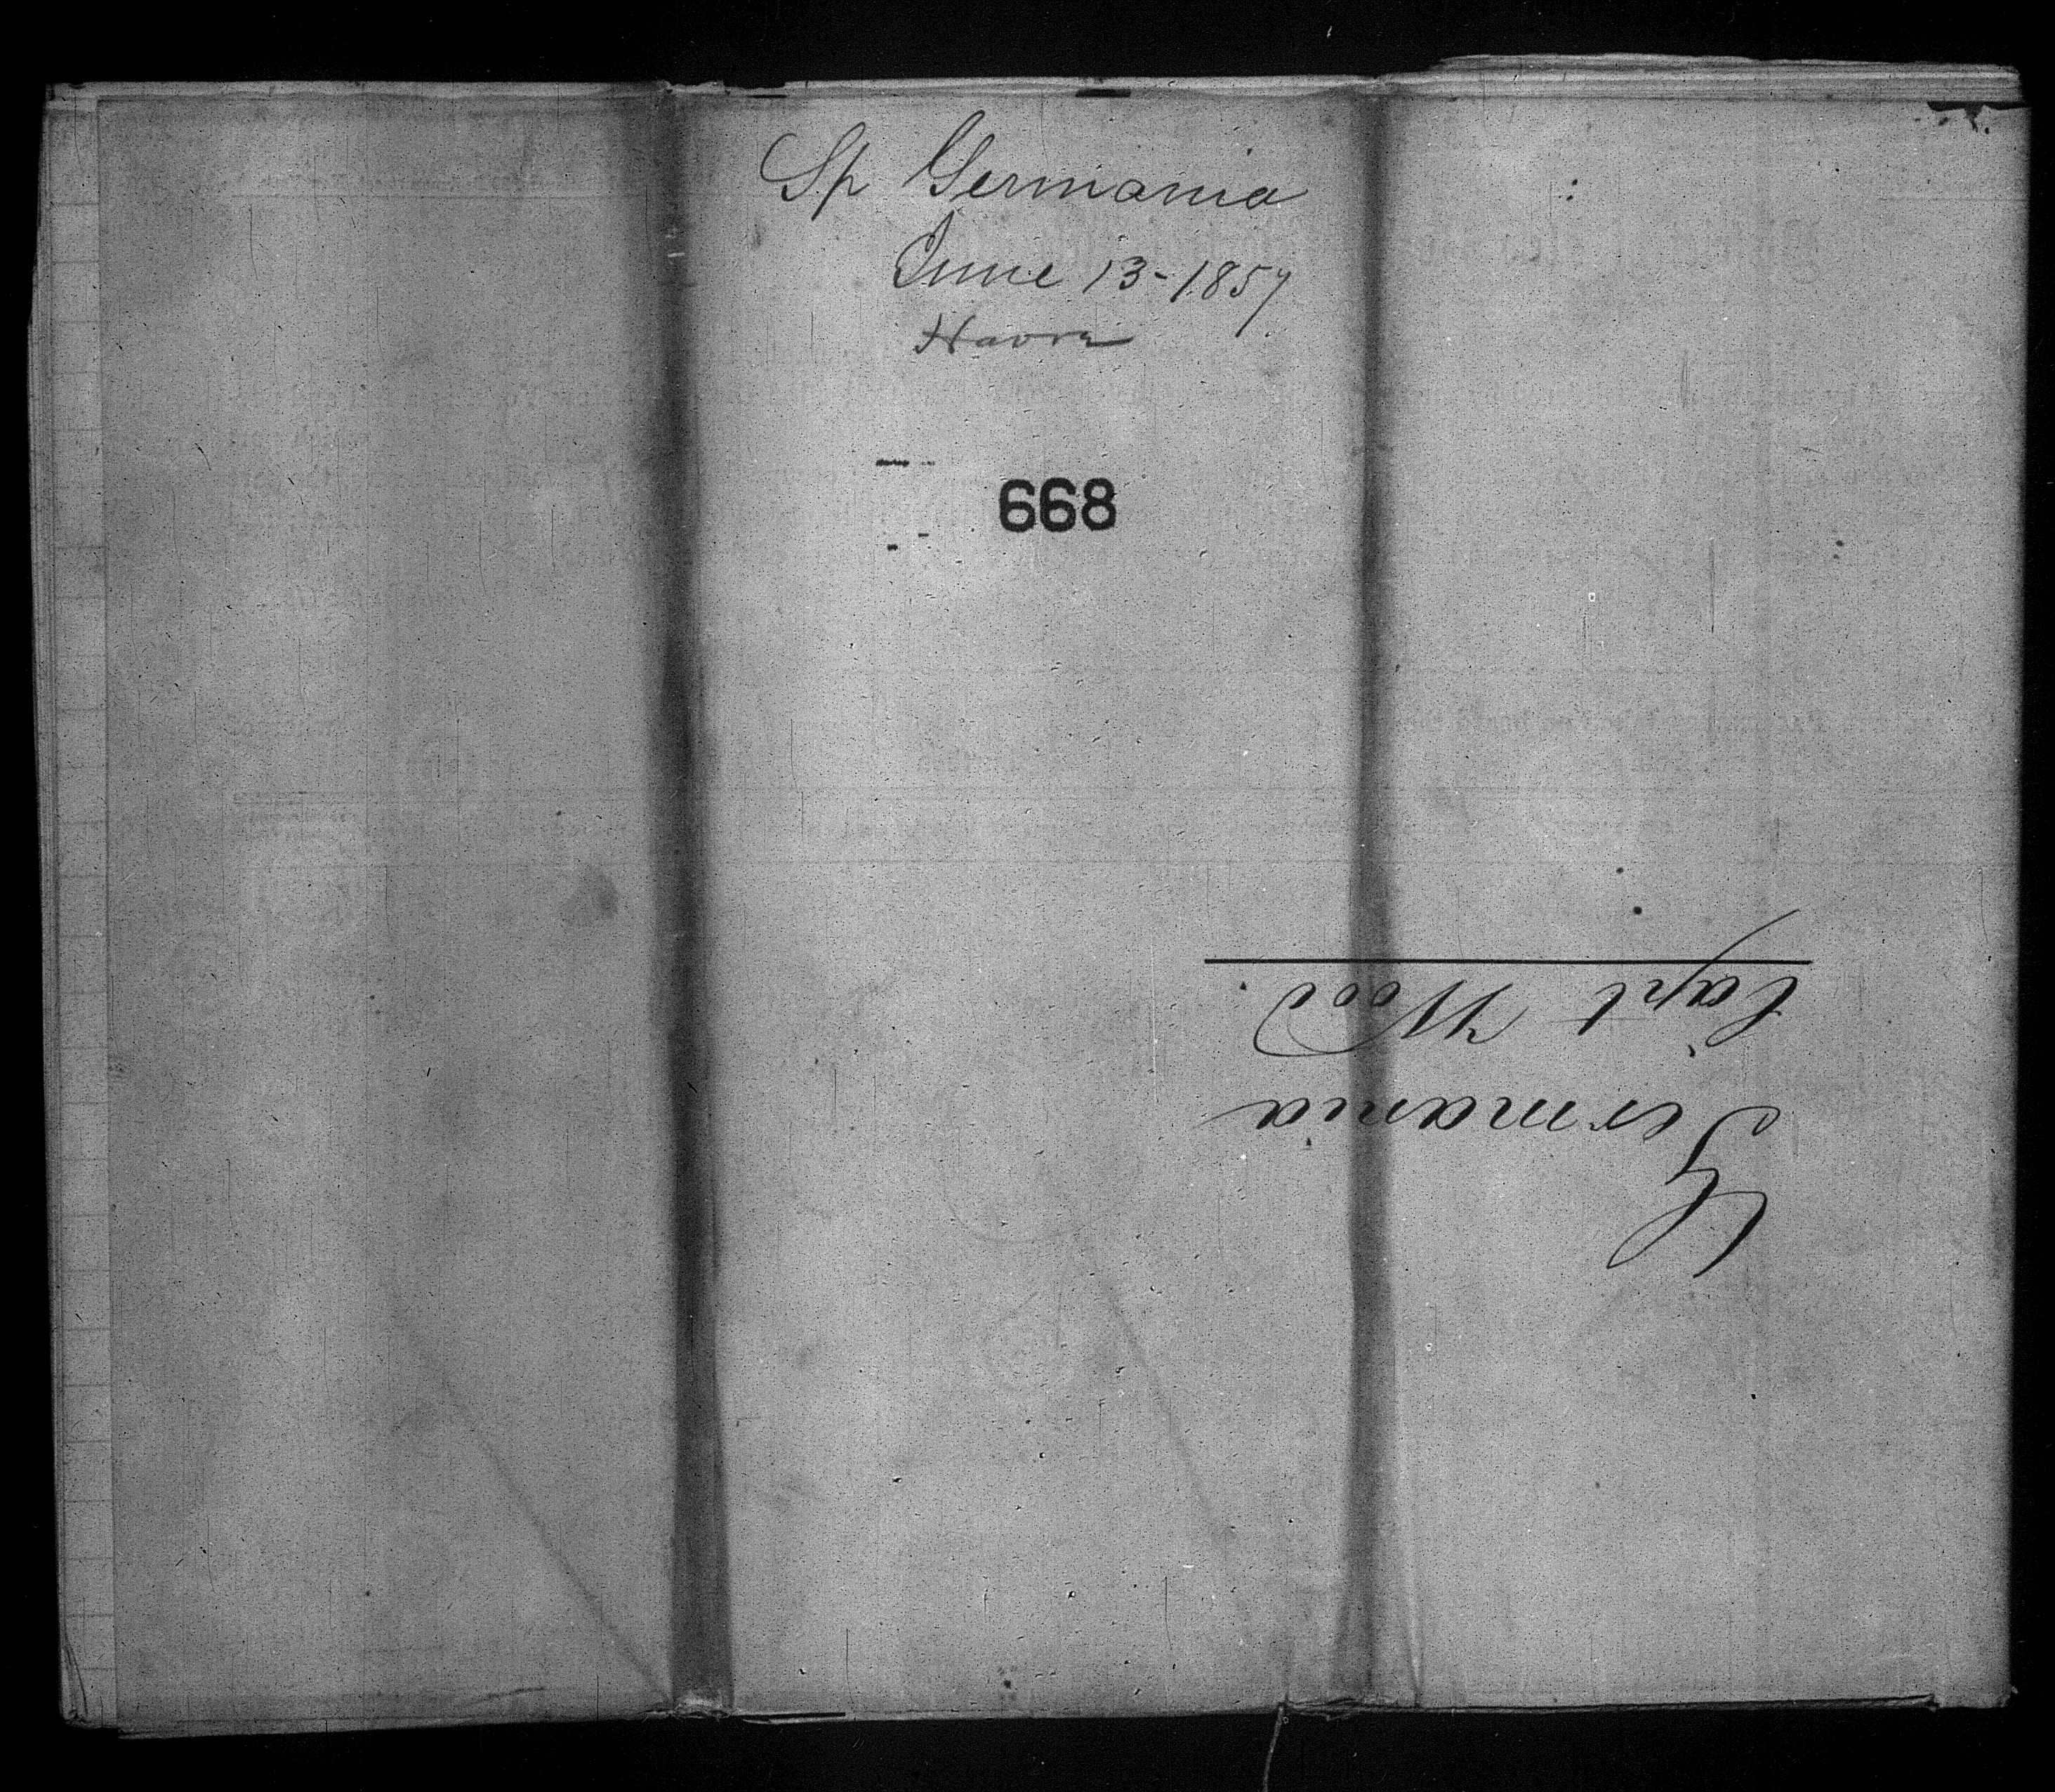 Sp Germania
June 13-1857
Havre
668
Germania
Capt Wood